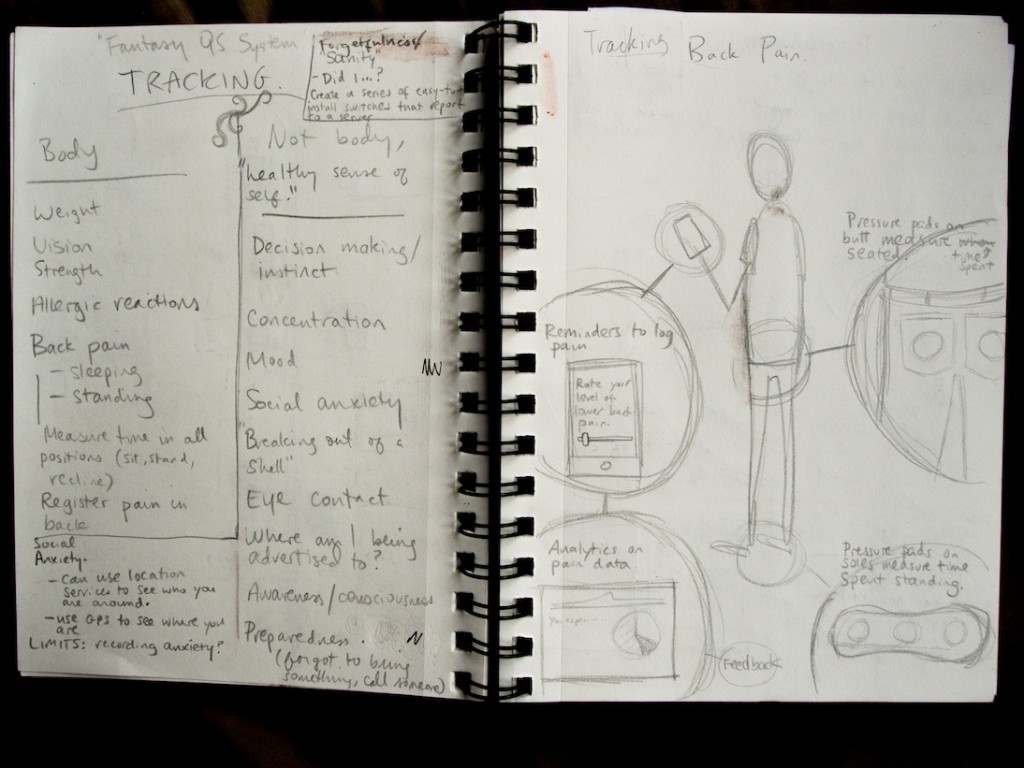 "Fantasy QS System
TRACKING.
Forgetfulness/
"Sanity"
- Did I...?
Create a series of easy-to-
install switches that report
to a server
Body
Weight
Vision
Strength
Allergic reactions
Back pain
- sleeping
- standing
Measure time in all
positions (sit, stand,
recline)
Register pain in
back
Social
Anxiety.
- can use location
services to see who you
are around.
- use GPS to see where you
are
LIMITS: recording anxiety?
Not body,
"healthy sense of
self."
Decision making/
instinct
Concentration
Mood
Social anxiety
"Breaking out of a
shell"
Eye contact
Where am I being
advertised to?
Awareness/consciousness
Preparedness.
(forgot to bring
something, call someone)
Tracking Back Pain.
Pressure pads on
butt measure when
seated. time?
spent
Reminders to log
pain
Rate your
level of
lower back
pain.
Analytics on
pain data
Feedback
Pressure pads on
soles measure time
spent standing.